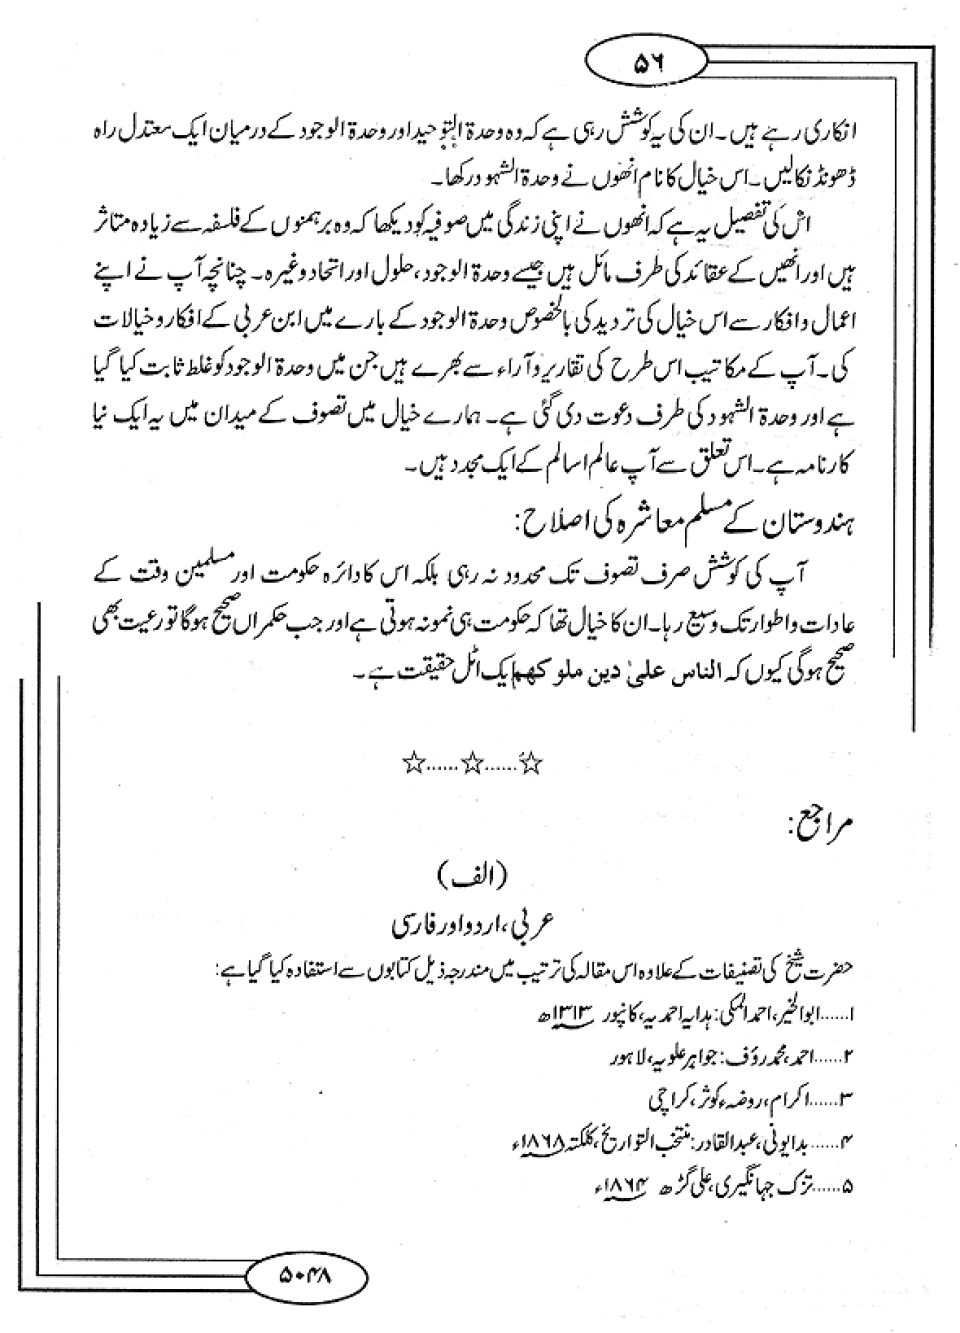 ۵۶
انکاری رہے ہیں۔ ان کی یہ کوشش رہی ہے کہ وہ وحدۃ التوحید اور وحدۃ الوجود کے درمیان ایک معتدل راہ
ڈھونڈ نکالیں۔ اس خیال کا نام انھوں نے وحدۃ الشہود رکھا۔
اس کی تفصیل یہ ہے کہ انھوں نے اپنی زندگی میں صوفیہ کو دیکھا کہ وہ برہمنوں کے فلسفہ سے زیادہ متاثر
ہیں اور انھیں کے عقائد کی طرف مائل ہیں جیسے وحدۃ الوجود، حلول اور اتحاد وغیرہ۔ چنانچہ آپ نے اپنے
اعمال و افکار سے اس خیال کی تردید کی بالخصوص وحدۃ الوجود کے بارے میں ابن عربی کے افکار و خیالات
کی۔ آپ کے مکاتیب اس طرح کی تقاریر و آراء سے بھرے ہیں جن میں وحدۃ الوجود کو غلط ثابت کیا گیا
ہے اور وحدۃ الشہود کی طرف دعوت دی گئی ہے۔ ہمارے خیال میں تصوف کے میدان میں یہ ایک نیا
کارنامہ ہے۔ اس تعلق سے آپ عالم اسالم کے ایک مجدد ہیں۔
ہندوستان کے مسلم معاشرہ کی اصلاح:
آپ کی کوشش صرف تصوف تک محدود نہ رہی بلکہ اس کا دائرہ حکومت اور مسلمین وقت کے
عادات و اطوار تک وسیع رہا۔ ان کا خیال تھا کہ حکومت ہی نمونہ ہوتی ہے اور جب حکمراں صحیح ہوگا تو رعیت بھی
صحیح ہوگی کیوں کہ الناس علیٰ دین ملوکھم ایک اٹل حقیقت ہے۔
☆......☆......☆
مراجع:
(الف)
عربی، اردو اور فارسی
حضرت شیخ کی تصنیفات کے علاوہ اس مقالہ کی ترتیب میں مندرجہ ذیل کتابوں سے استفادہ کیا گیا ہے:
۱......ابوالخیر، احمد المکی: ہدایہ احمدیہ، کانپور ۱۳۱۳ھ
۲......احمد، محمد رؤف: جواہر علویہ، لاہور
۳......اکرام، روضہء کوثر، کراچی
۴......بدایونی، عبدالقادر: منتخب التواریخ، کلکتہ ۱۸۶۸ء
۵......تزک جہانگیری، علی گڑھ ۱۸۶۴ء
۵۰۴۸